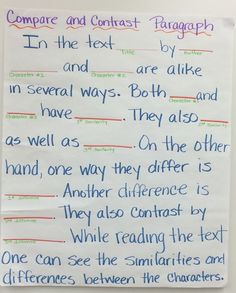 Compare and Contrast Paragraph
In the text ____ by ____
Title Author
____ and ____ are alike
Character #1 Character #2
in several ways. Both ____ and
____ have ____. They also
____,
as well as ____. On the other
hand, one way they differ is
____. Another difference is
____. They also contrast by
____. While reading the text
One can see the similarities and
differences between the characters.